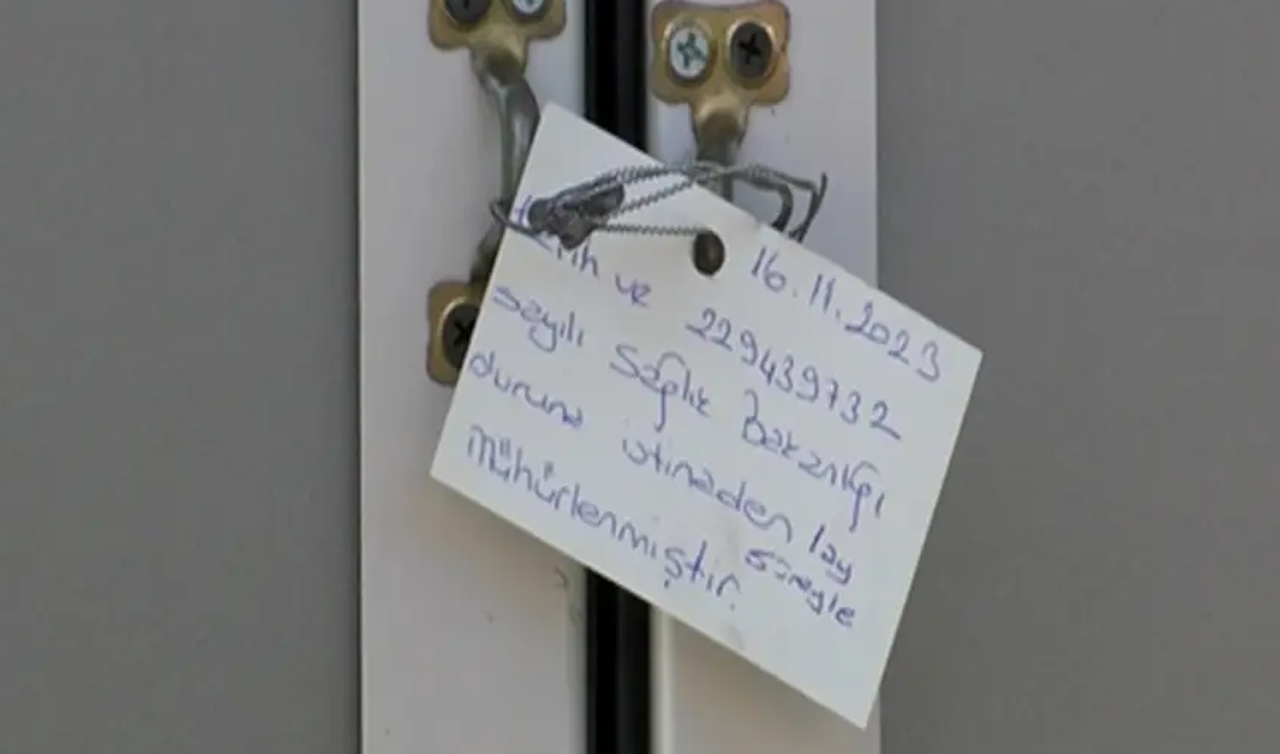 16.11.2023
tarih ve 229439732
sayılı Sağlık Bakanlığı
duruna istinaden 1ay
süreyle
Mühürlenmiştir.